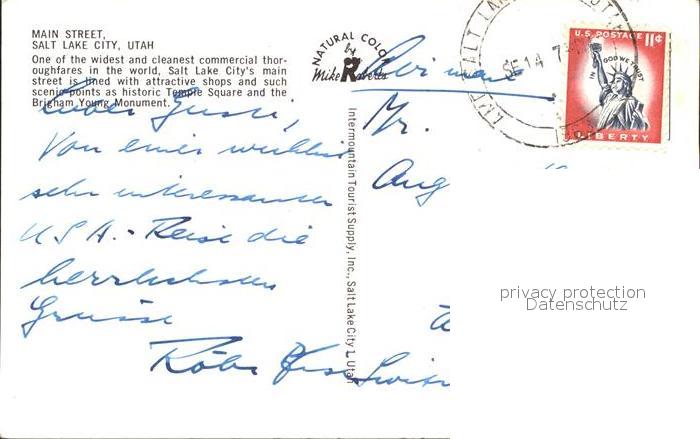 MAIN STREET,
SALT LAKE CITY, UTAH
One of the widest and cleanest commercial thor-
oughfares in the world, Salt Lake City's main
street is lined with attractive shops and such
scenic points as historic Temple Square and the
Brigham Young Monument.
NATURAL COLOR
by
Mike Roberts
Intermountain Tourist Supply, Inc., Salt Lake City 1, Utah
SALT LAKE
SE 14
U.S. POSTAGE 11¢
IN GOD WE TRUST
LIBERTY
Air mail
Mr.
Aug
Lieber Gusti,
Von einer wirklich
sehr interessanten
USA.-Reise die
herrlichsten
Grüsse
privacy protection
Datenschutz